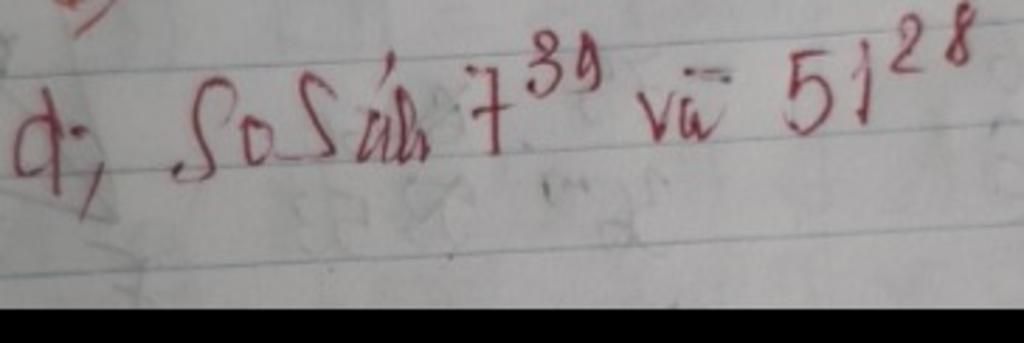 d; So Sánh 7^39 và 51^28